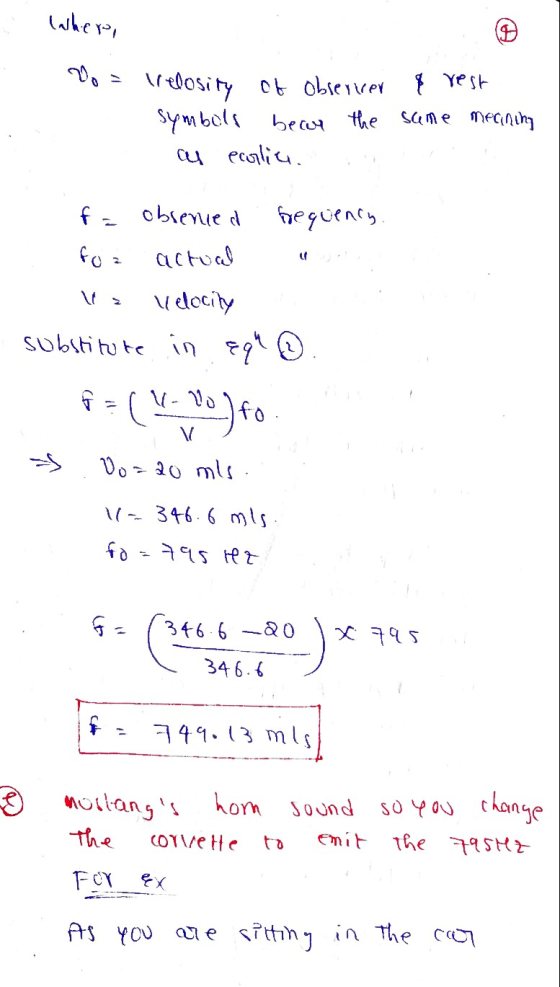 Where,
④
v₀ = velosity of observer & rest
symbols bear the same meaning
as earlier.
f = observed frequency.
f₀ = actual "
V = velocity
substitute in eqⁿ ②.
f = ( V - v₀ / V ) f₀.
⇒ v₀ = 20 m/s.
V = 346.6 m/s.
f₀ = 795 Hz
f = ( 346.6 - 20 / 346.6 ) × 795
f = 749.13 m/s
mustang's horn sound so you change
The corvette to emit the 795Hz
For ex
As you are sitting in the car